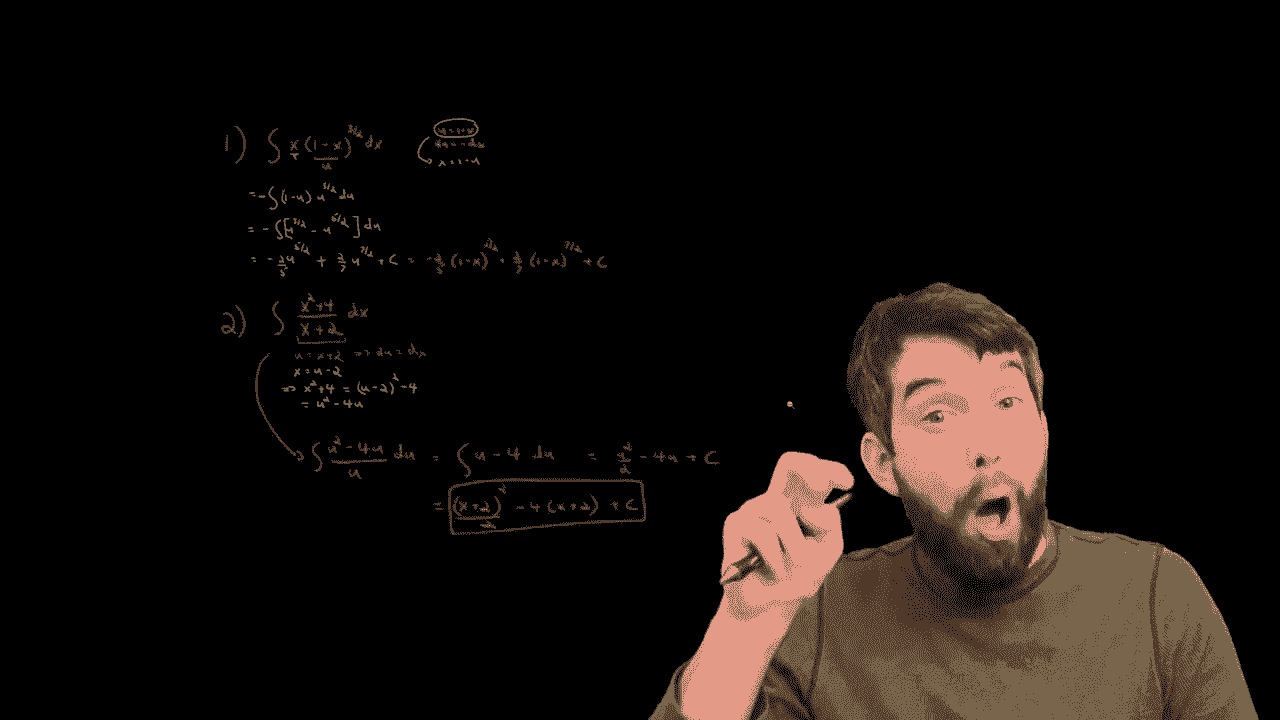 1) ∫ x (1-x)^{3/2} dx
u
u=1-x
du=-dx
x=1-u
= -∫ (1-u) u^{3/2} du
= -∫ [u^{3/2} - u^{5/2}] du
= -2/5 u^{5/2} + 2/7 u^{7/2} + C = -2/5 (1-x)^{5/2} + 2/7 (1-x)^{7/2} + C
2) ∫ (x²+4)/(x+2) dx
u=x+2 => du=dx
x=u-2
=> x²+4 = (u-2)²-4
= u²-4u
∫ (u²-4u)/u du = ∫ u-4 du = u²/2 - 4u + C
= (x+2)²/2 - 4(x+2) + C